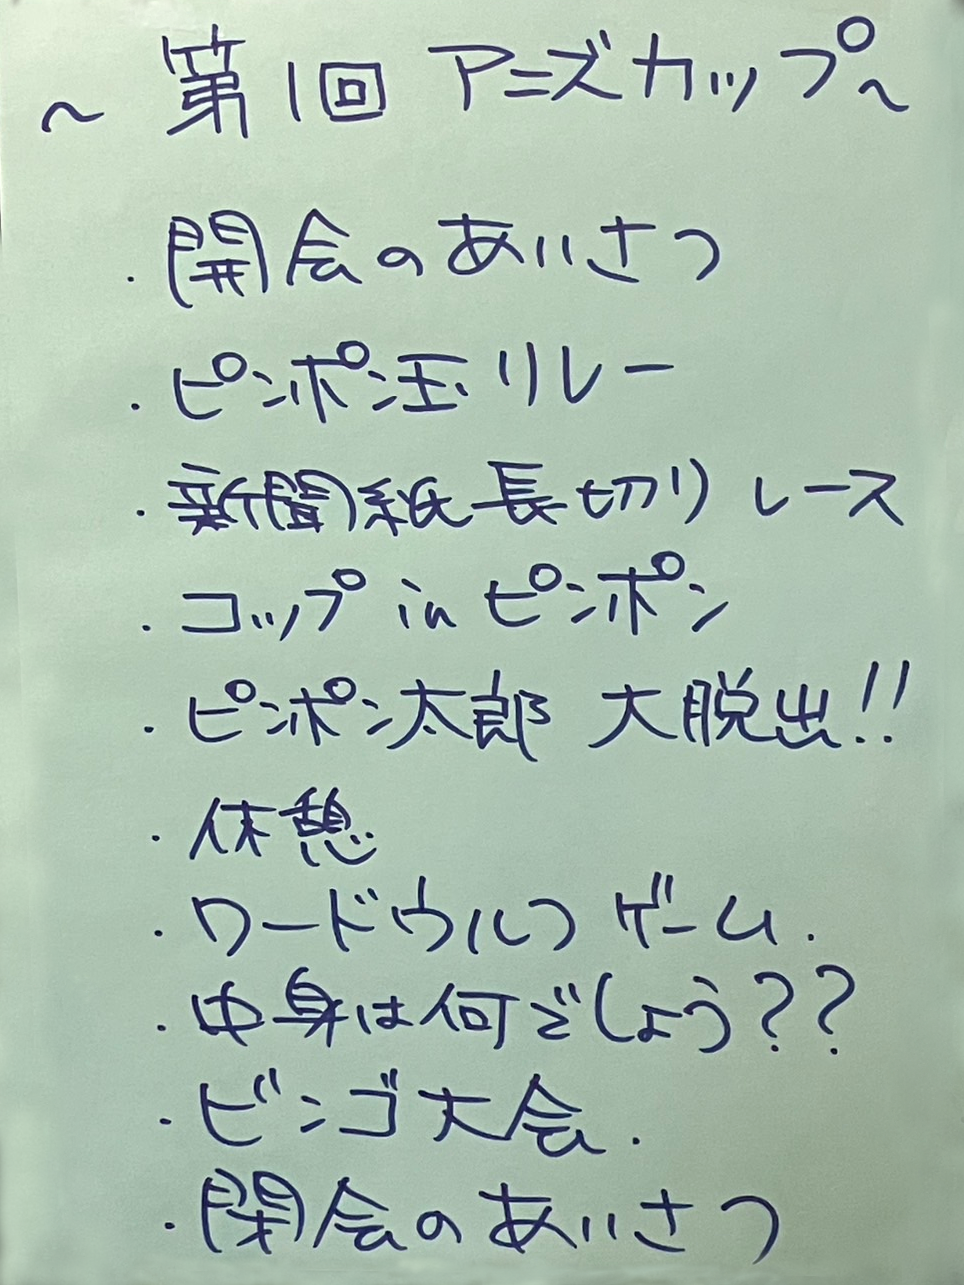 ～第1回 アニズカップ～
・開会のあいさつ
・ピンポン玉リレー
・新聞紙長切りレース
・コップinピンポン
・ピンポン太郎 大脱出!!
・休憩
・ワードウルフ ゲーム.
・中身は何でしょう??
・ビンゴ大会.
・閉会のあいさつ